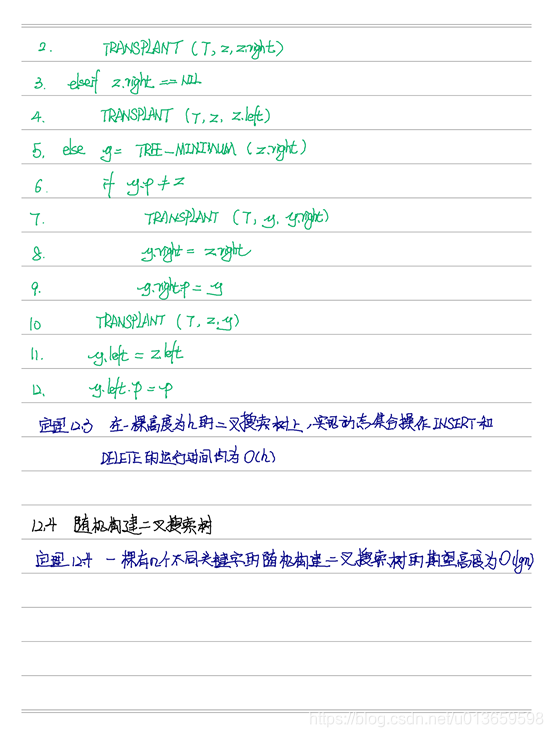 2. TRANSPLANT (T, z, z.right)
3. elseif z.right == NIL
4. TRANSPLANT (T, z, z.left)
5. else y = TREE-MINIMUM (z.right)
6. if y.p ≠ z
7. TRANSPLANT (T, y, y.right)
8. y.right = z.right
9. y.right.p = y
10 TRANSPLANT (T, z, y)
11. y.left = z.left
12. y.left.p = p
定理12.3 在一棵高度为h的二叉搜索树上,实现动态集合操作INSERT和
DELETE的运行时间均为O(h)
12.4 随机构建二叉搜索树
定理12.4 一棵有n个不同关键字的随机构建二叉搜索树的期望高度为O(lgn)
https://blog.csdn.net/u013659598